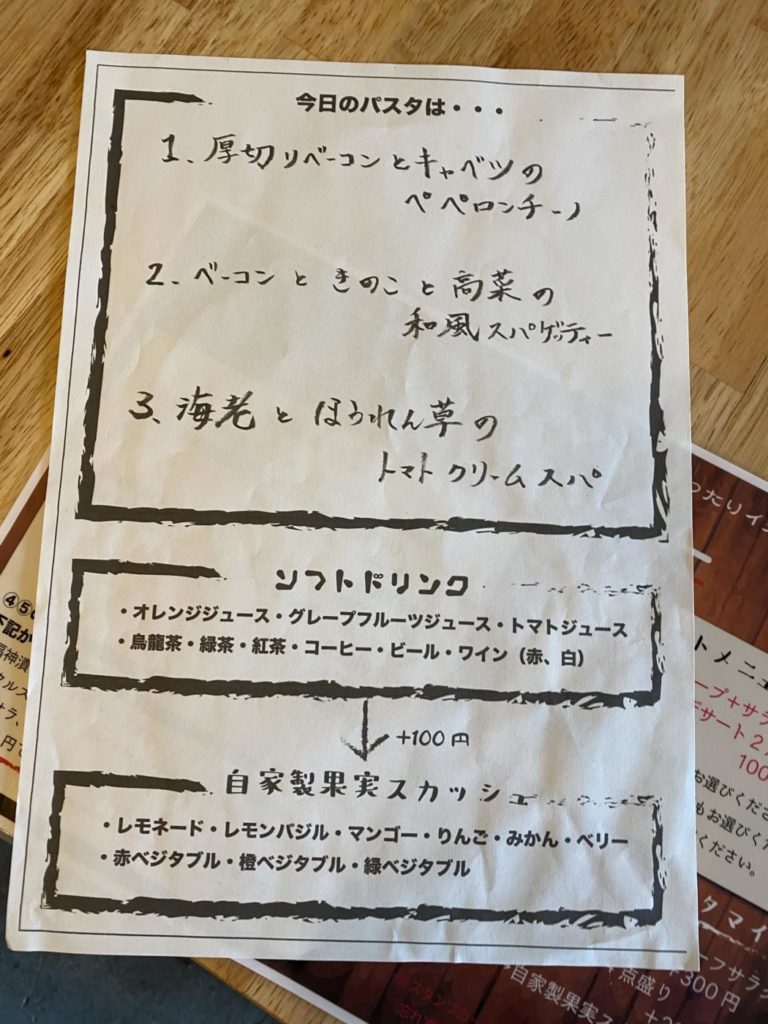 今日のパスタは・・・
1、厚切りベーコンとキャベツの
ペペロンチーノ
2、ベーコンときのこと高菜の
和風スパゲッティー
3、海老とほうれん草の
トマトクリームスパ
ソフトドリンク
・オレンジジュース・グレープフルーツジュース・トマトジュース
・烏龍茶・緑茶・紅茶・コーヒー・ビール・ワイン（赤、白）
+100円
自家製果実スカッシュ
・レモネード・レモンバジル・マンゴー・りんご・みかん・ベリー
・赤ベジタブル・橙ベジタブル・緑ベジタブル
④⑤
下記か
福神漬
タルス
サラ、
円で
ったりイ
トメニュ
ープ+サラ
デザート2
100
お選びくださ
もお選びくた
ください。
タマイ
ーフサラダ
+300円
点盛り
自家製果実ス